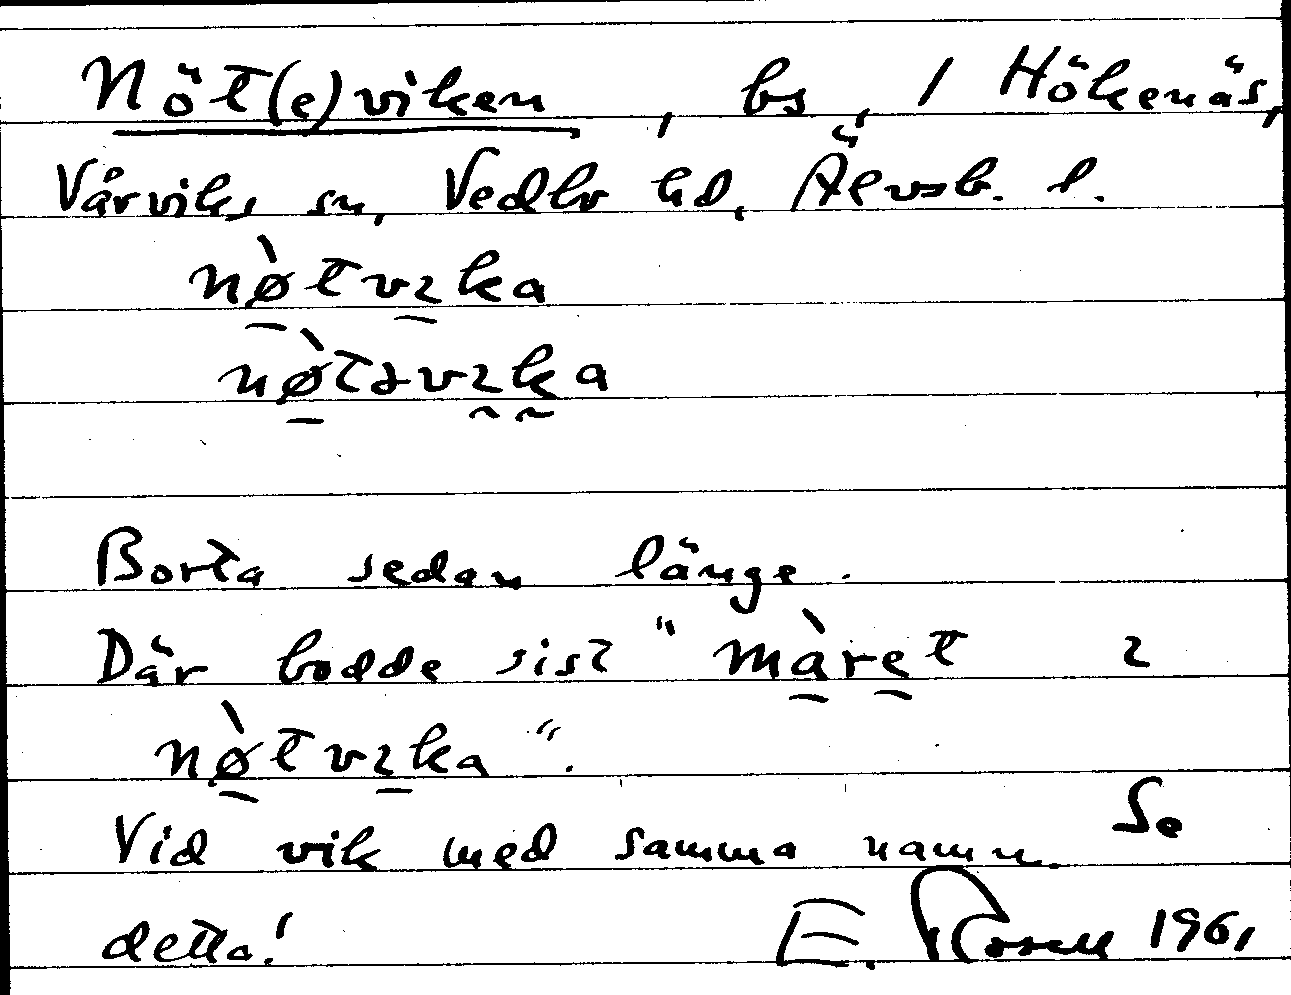 Nöt(e)viken, bs, / Hökenäs,
Vårviks sn, Vedbo hd, Älvsb. l.
nø̀tvıka
nø̀təvıka
Borta sedan länge.
Där bodde sist "màret ı
nø̀tvıka".
Vid vik med samma namn. Se
detta! E. Rosell 1961